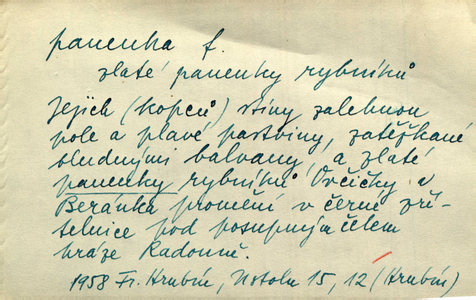 panenka f.
zlaté panenky rybníků
Jejich (kopců) stíny zalehnou
pole a plavé pastviny, zatěžkané
bludnými balvany, a zlaté
panenky rybníků Ovčičky a
Beránka promění v černé zří-
telnice pod posupným čelem
hráze Radouně.
1958 Fr. Hrubín, U stolu 15, 12 (Hrubín)